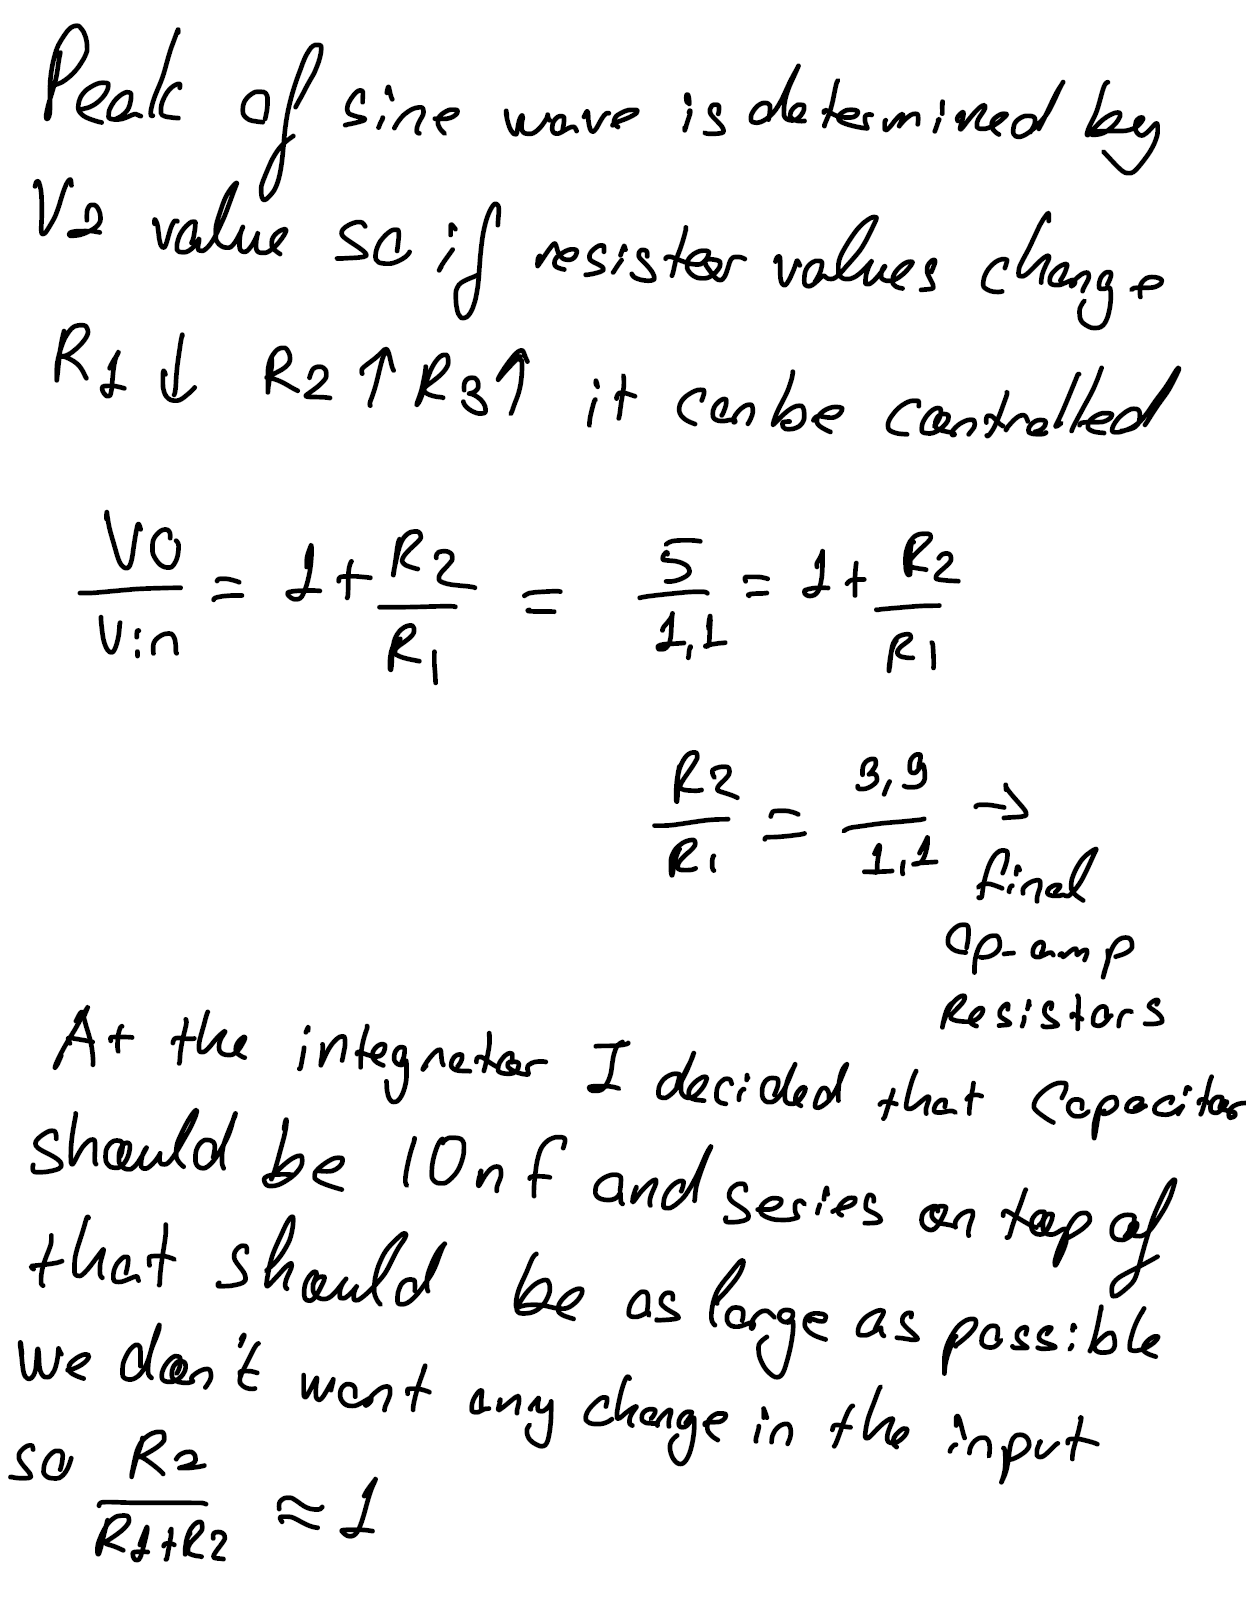 Peak of sine wave is determined by
V2 value so if resistor values change
R1 ↓ R2 ↑ R3 ↑ it can be controlled
Vo/Vin = 1 + R2/R1 = 5/1,1 = 1 + R2/R1
R2/R1 = 3,9/1,1 →
final
op-amp
Resistors
At the integrator I decided that capacitor
should be 10nf and series on top of
that should be as large as possible
we don't want any change in the input
so R2/(R1+R2) ≈ 1